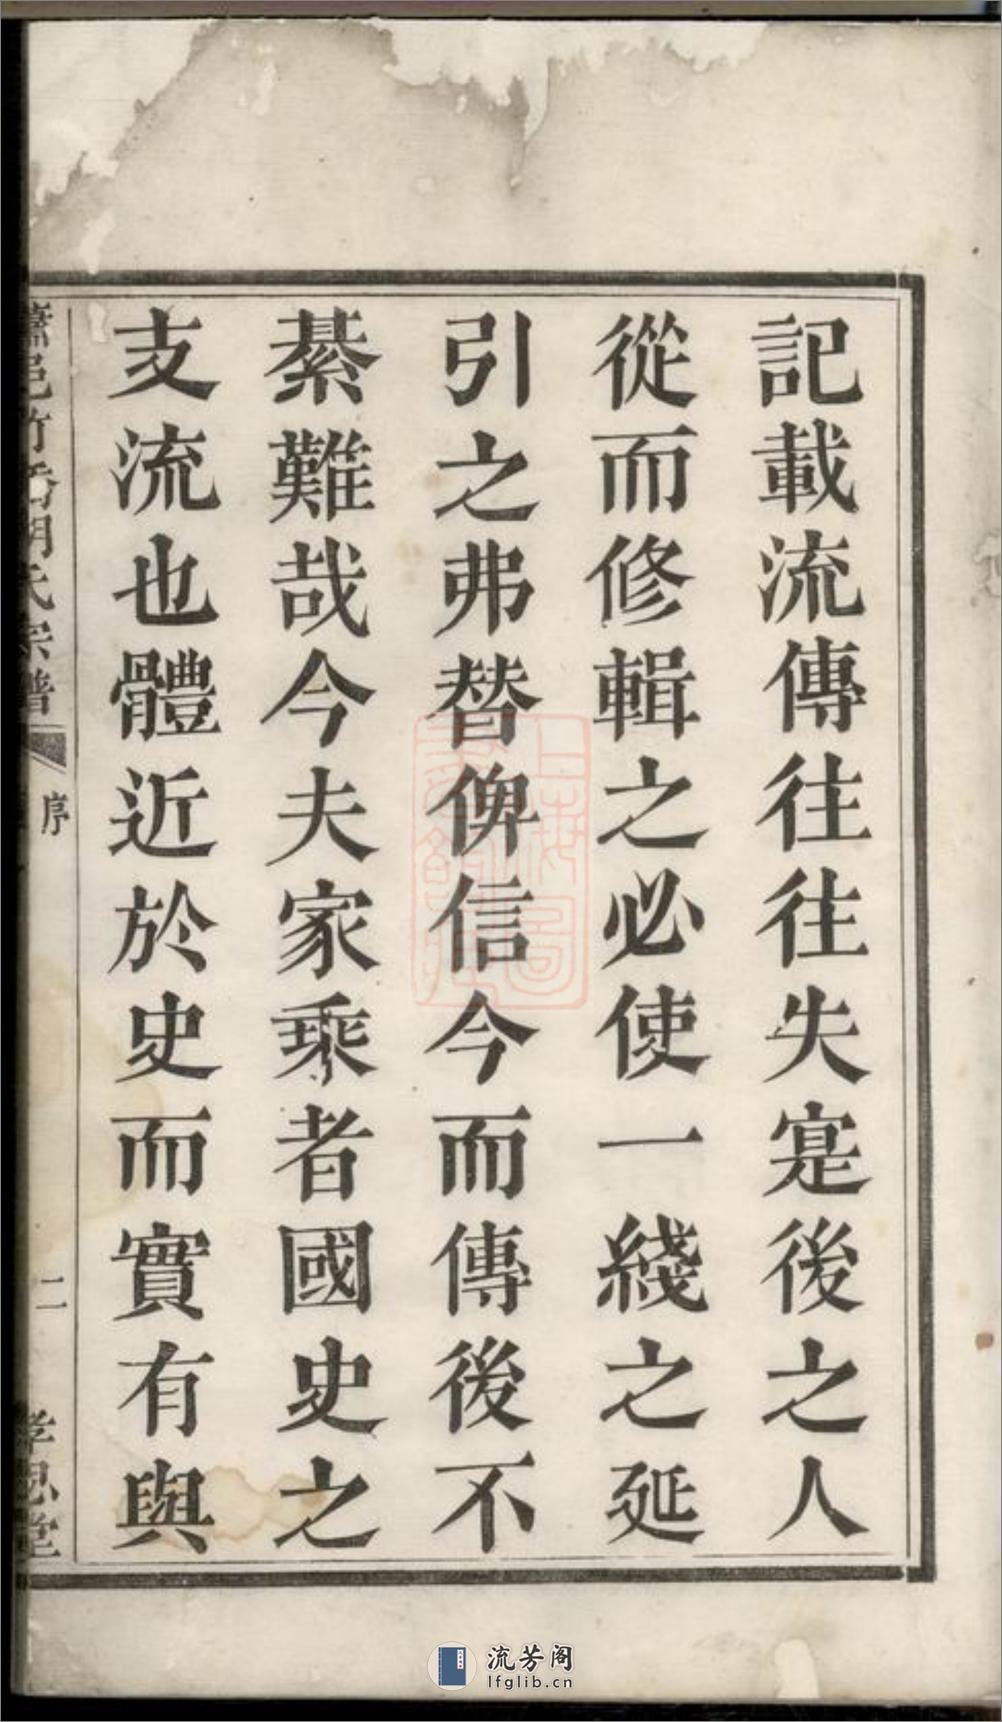 記載流傳往往失寔後之人
從而修輯之必使一綫之延
引之弗替俾信今而傳後不
綦難哉今夫家乘者國史之
支流也體近於史而實有與
蕭邑竹橋胡氏宗譜
序
二
孝思堂
流芳阁
lfglib.cn